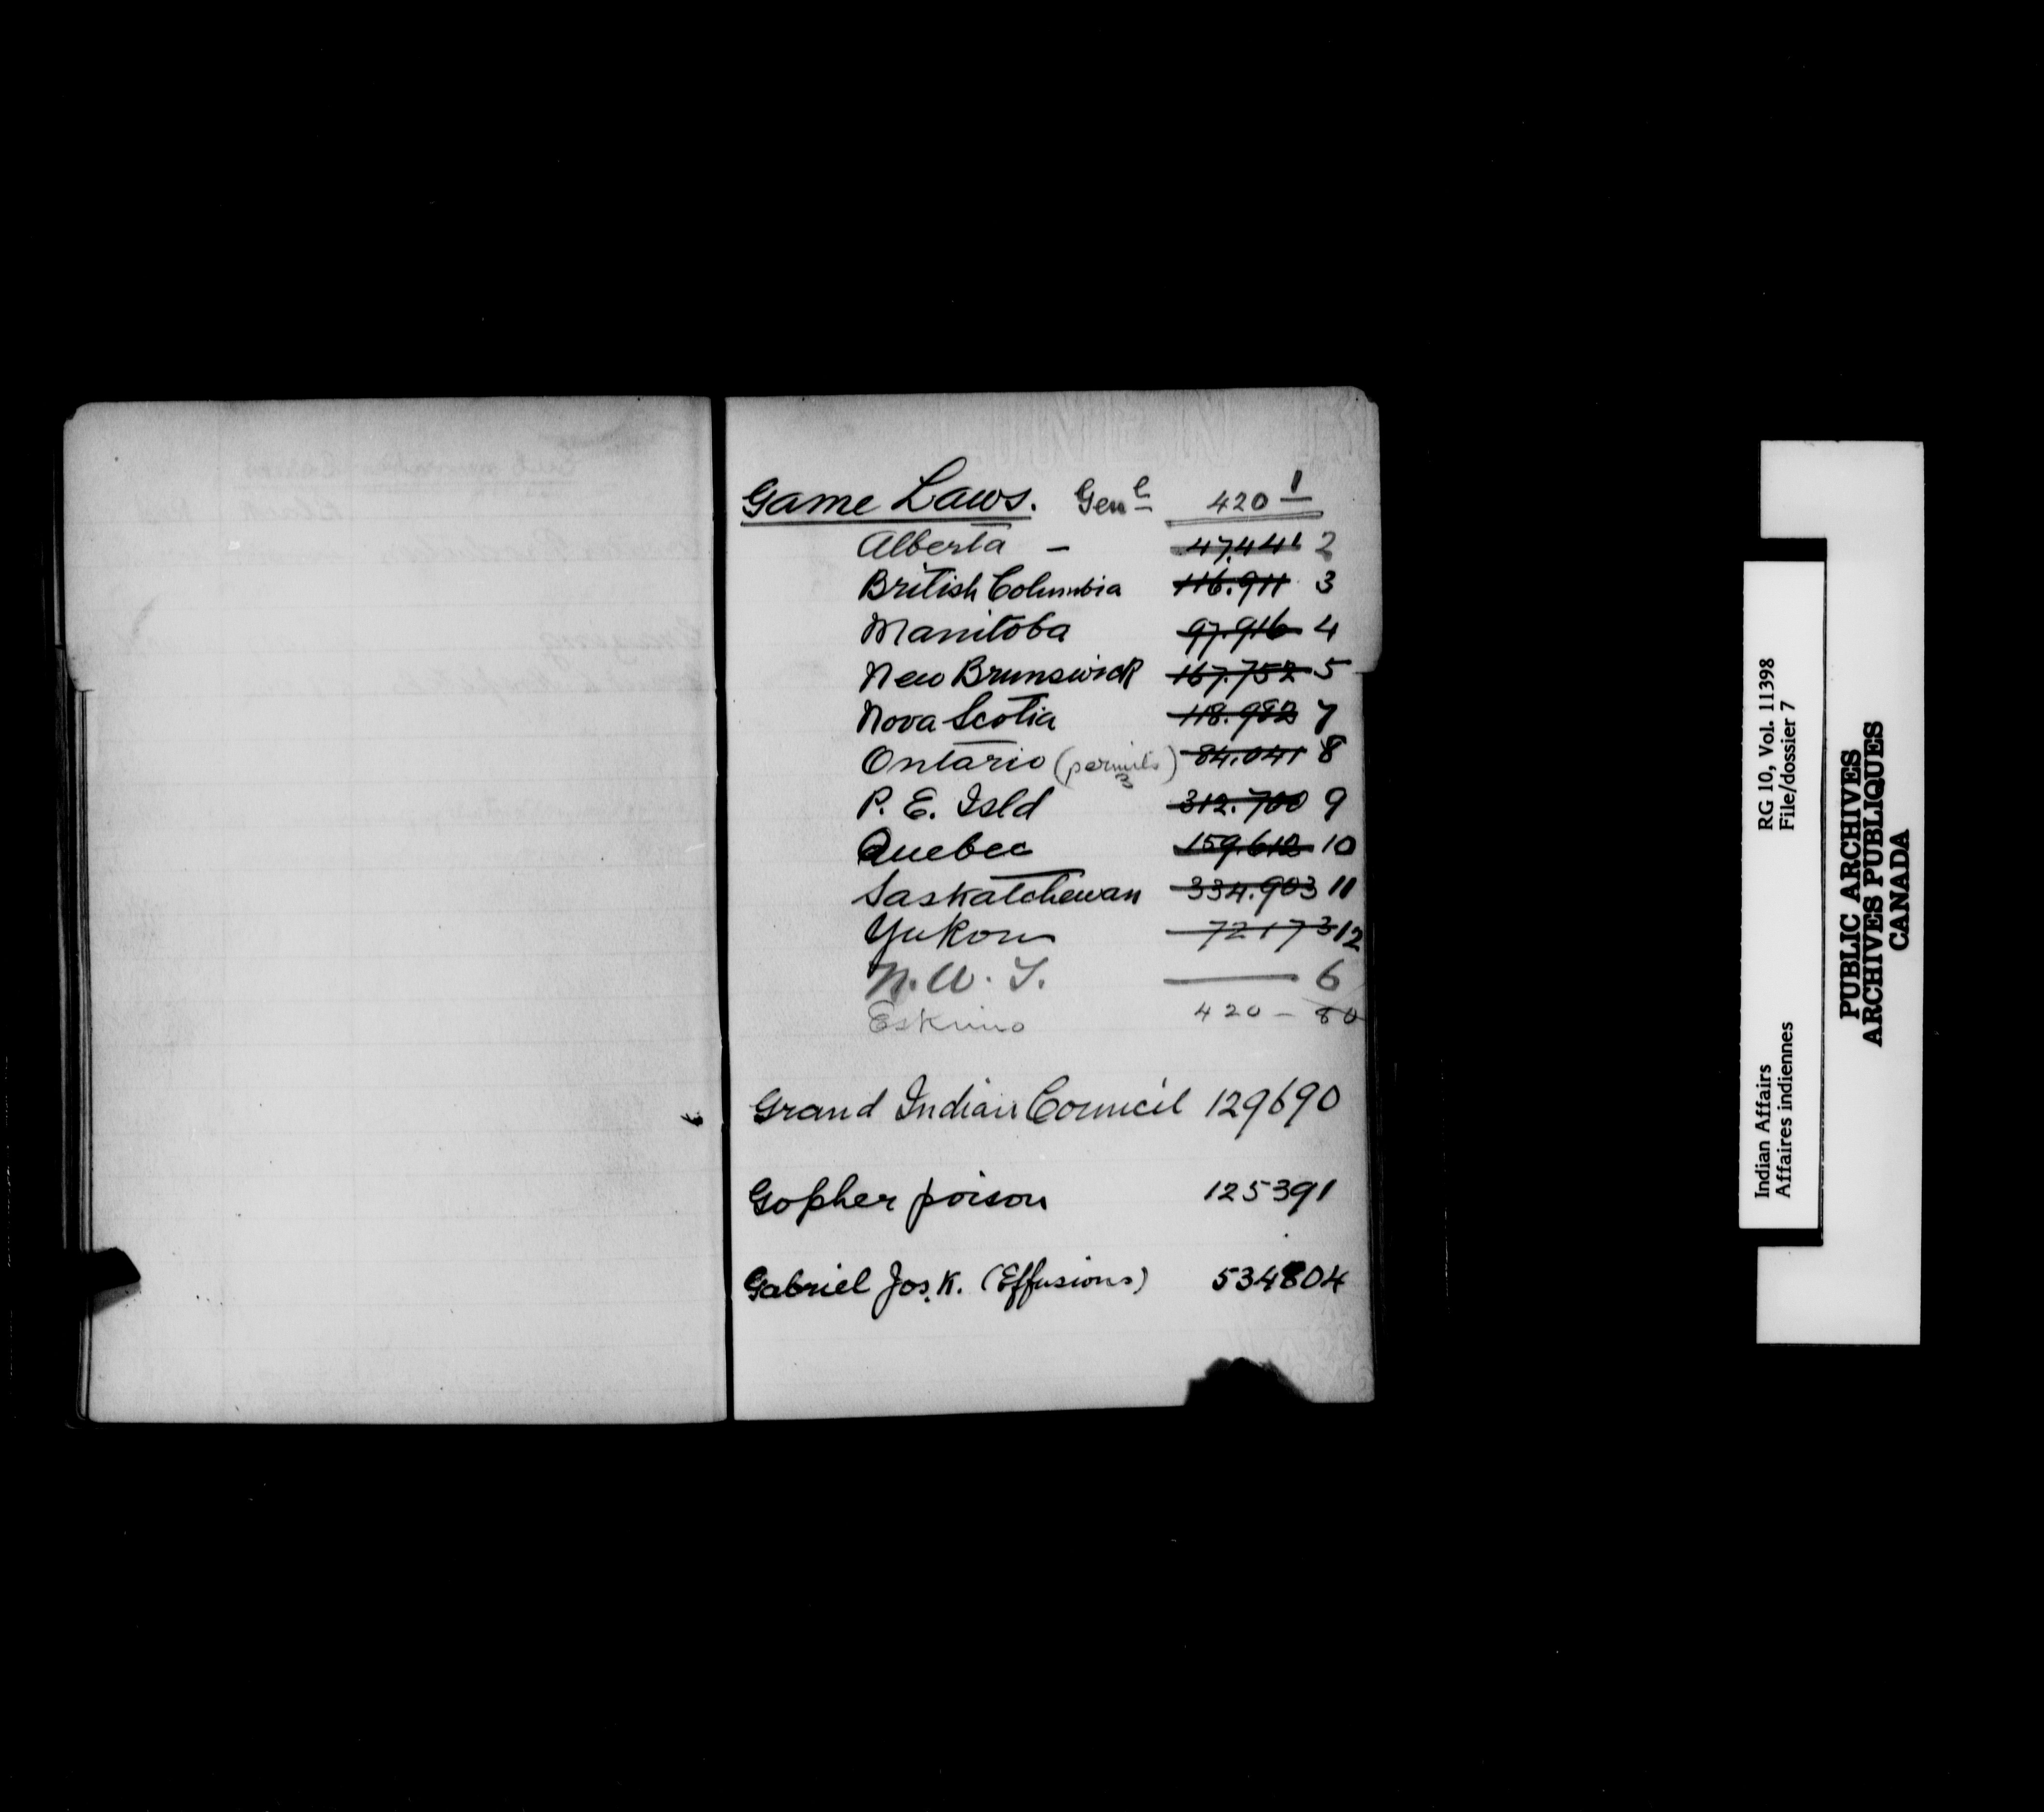 Game Laws. Genl 420 1
Alberta - 47.441 2
British Columbia 116.911 3
Manitoba 97.916 4
New Brunswick 167.752 5
Nova Scotia 118.982 7
Ontario (permits) 84.041 8
3
P. E. Isld 312.700 9
Quebec 159.612 10
Saskatchewan 334.903 11
Yukon 72173 12
N.W.T. 6
Eskimo 420 - 80
Grand Indian Council 129690
Gopher poison 125391
Gabriel Jos. K. (Effusions) 534804
Indian Affairs RG 10, Vol. 11398
Affaires indiennes File/dossier 7
PUBLIC ARCHIVES
ARCHIVES PUBLIQUES
CANADA